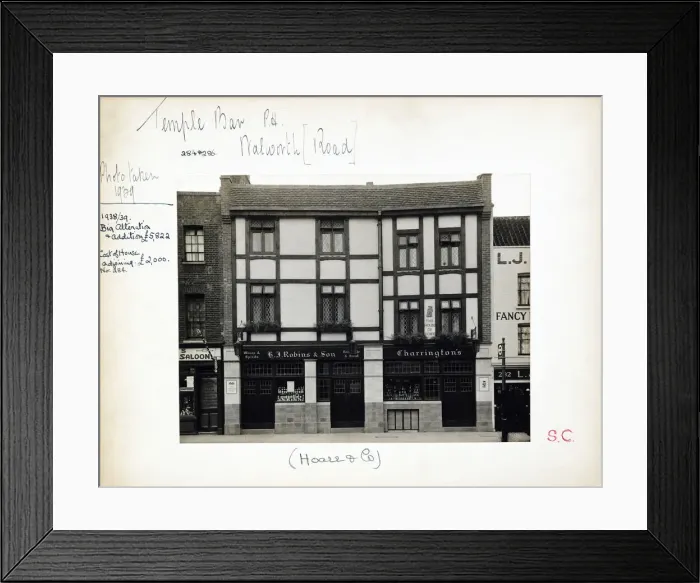 Temple Bar P.H.
284 & 286
Walworth [Road]
Photo taken
1939
1938/39.
Big Alteration
& addition £5,822
Cost of House
adjoining £2,000.
No. 284.
L.J.
FANCY
SALOON
Wines &
Spirits
G.J. Robins & Son
Charrington's
232 L.
(Hoare & Co)
S.C.